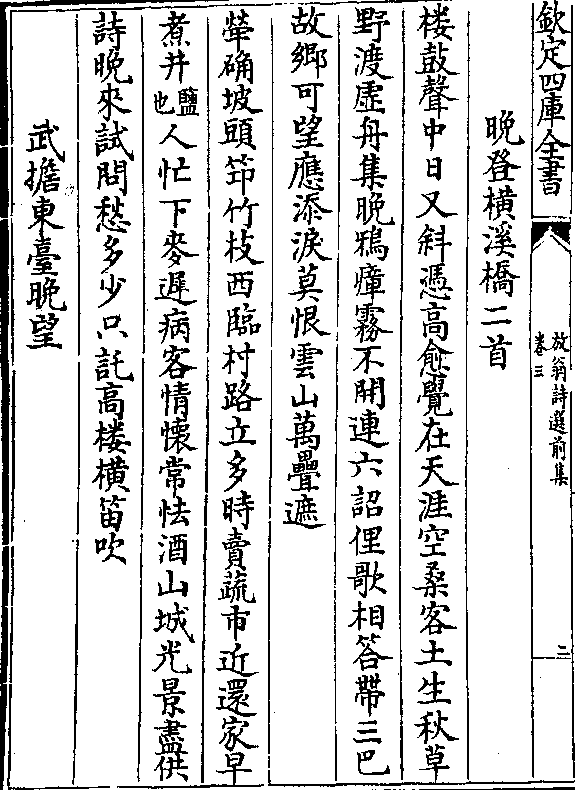 欽定四庫全書
放翁詩選前集
卷三
二
晚登横溪橋二首
楼鼓聲中日又斜憑高愈覺在天涯空桑客土生秋草
野渡虚舟集晚鴉瘴霧不開連六詔俚歌相答帶三巴
故鄉可望應添淚莫恨雲山萬疊遮
犖确坡頭筇竹枝西臨村路立多時賣蔬市近還家早
煮井鹽也人忙下麥遲病客情懷常怯酒山城光景盡供
詩晚來試問愁多少只託高楼横笛吹
武擔東臺晚望